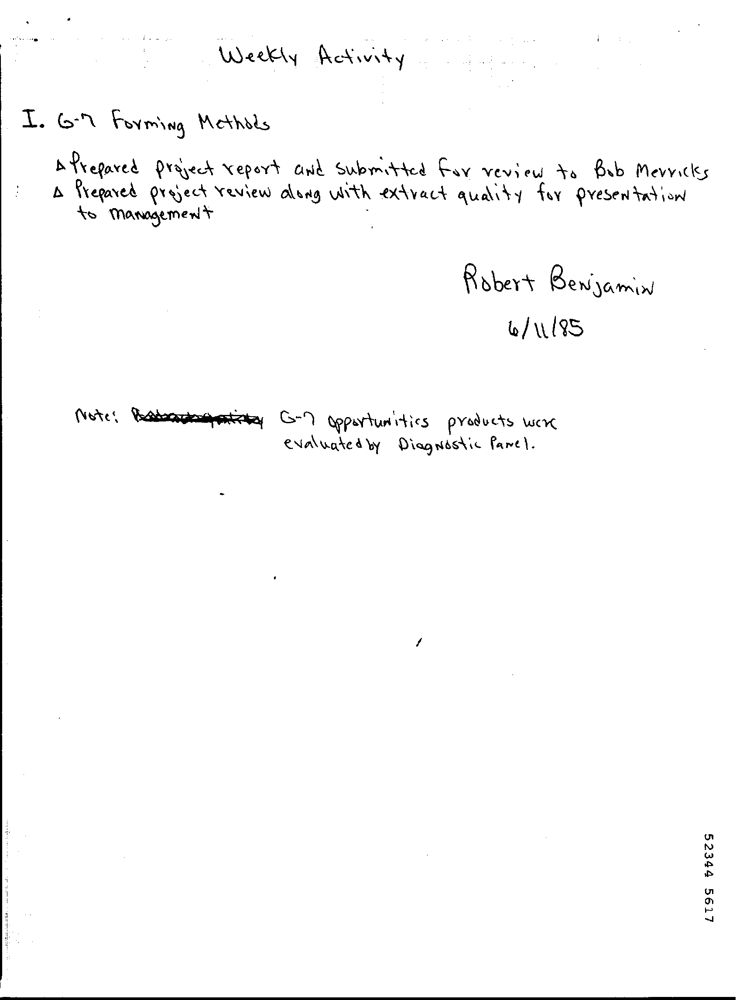 Weekly Activity
I. G-7 Forming Methods
Δ Prepared project report and submitted for review to Bob Merricks
Δ Prepared project review along with extract quality for presentation
to management
Robert Benjamin
6/11/85
Note: G-7 opportunities products were
evaluated by Diagnostic Panel.
52344 5617